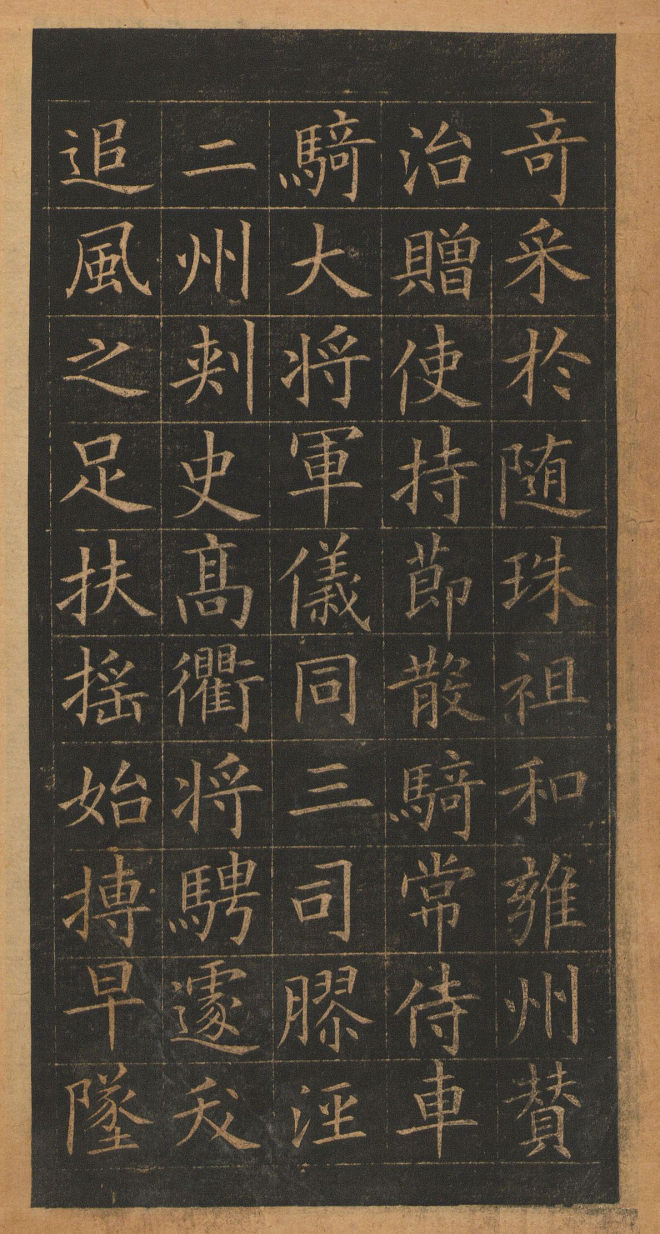 竒采於随珠祖和雍州賛
治贈使持節散騎常侍車
騎大将軍儀同三司膠涇
二州刺史髙衢将騁遽夭
追風之足扶摇始搏早墜